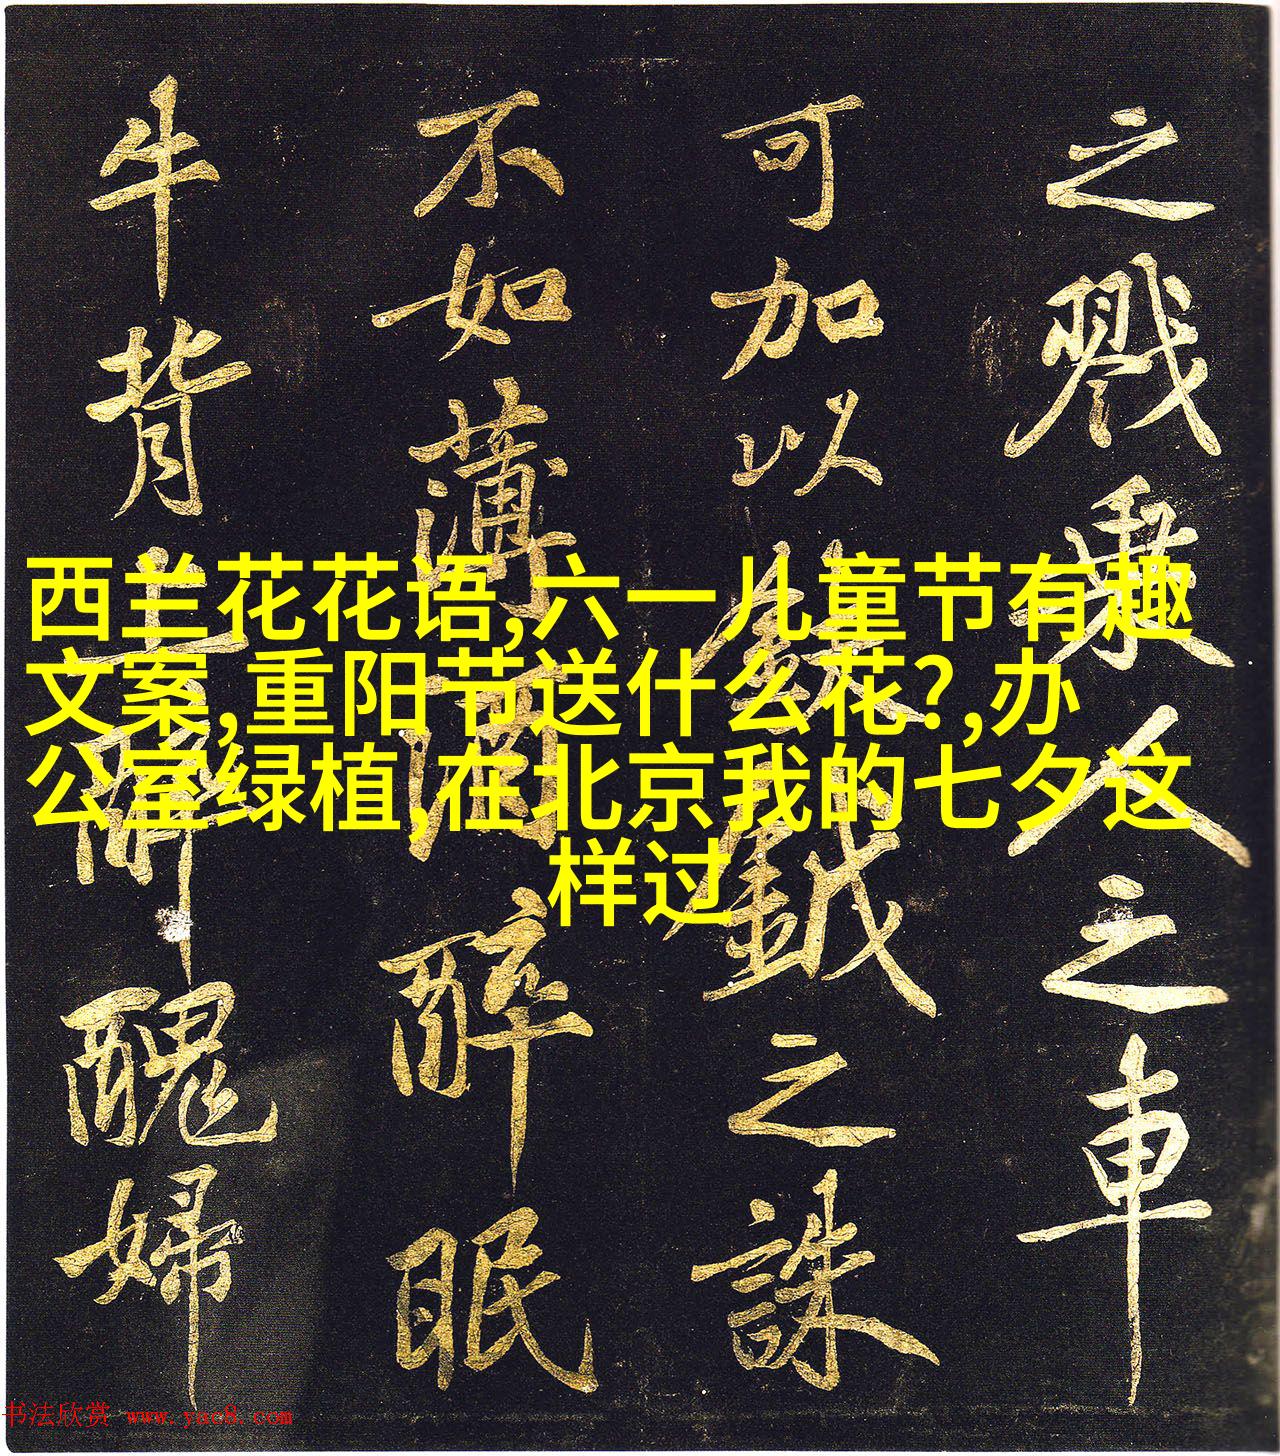 之戮乘人之車
可加以鈇鉞之誅
不如薄酒醉眠
牛背上醉醜婦
西兰花花语,六一儿童节有趣
文案,重阳节送什么花?,办
公室绿植,在北京我的七夕这
样过
书法欣赏 www.yac8.com